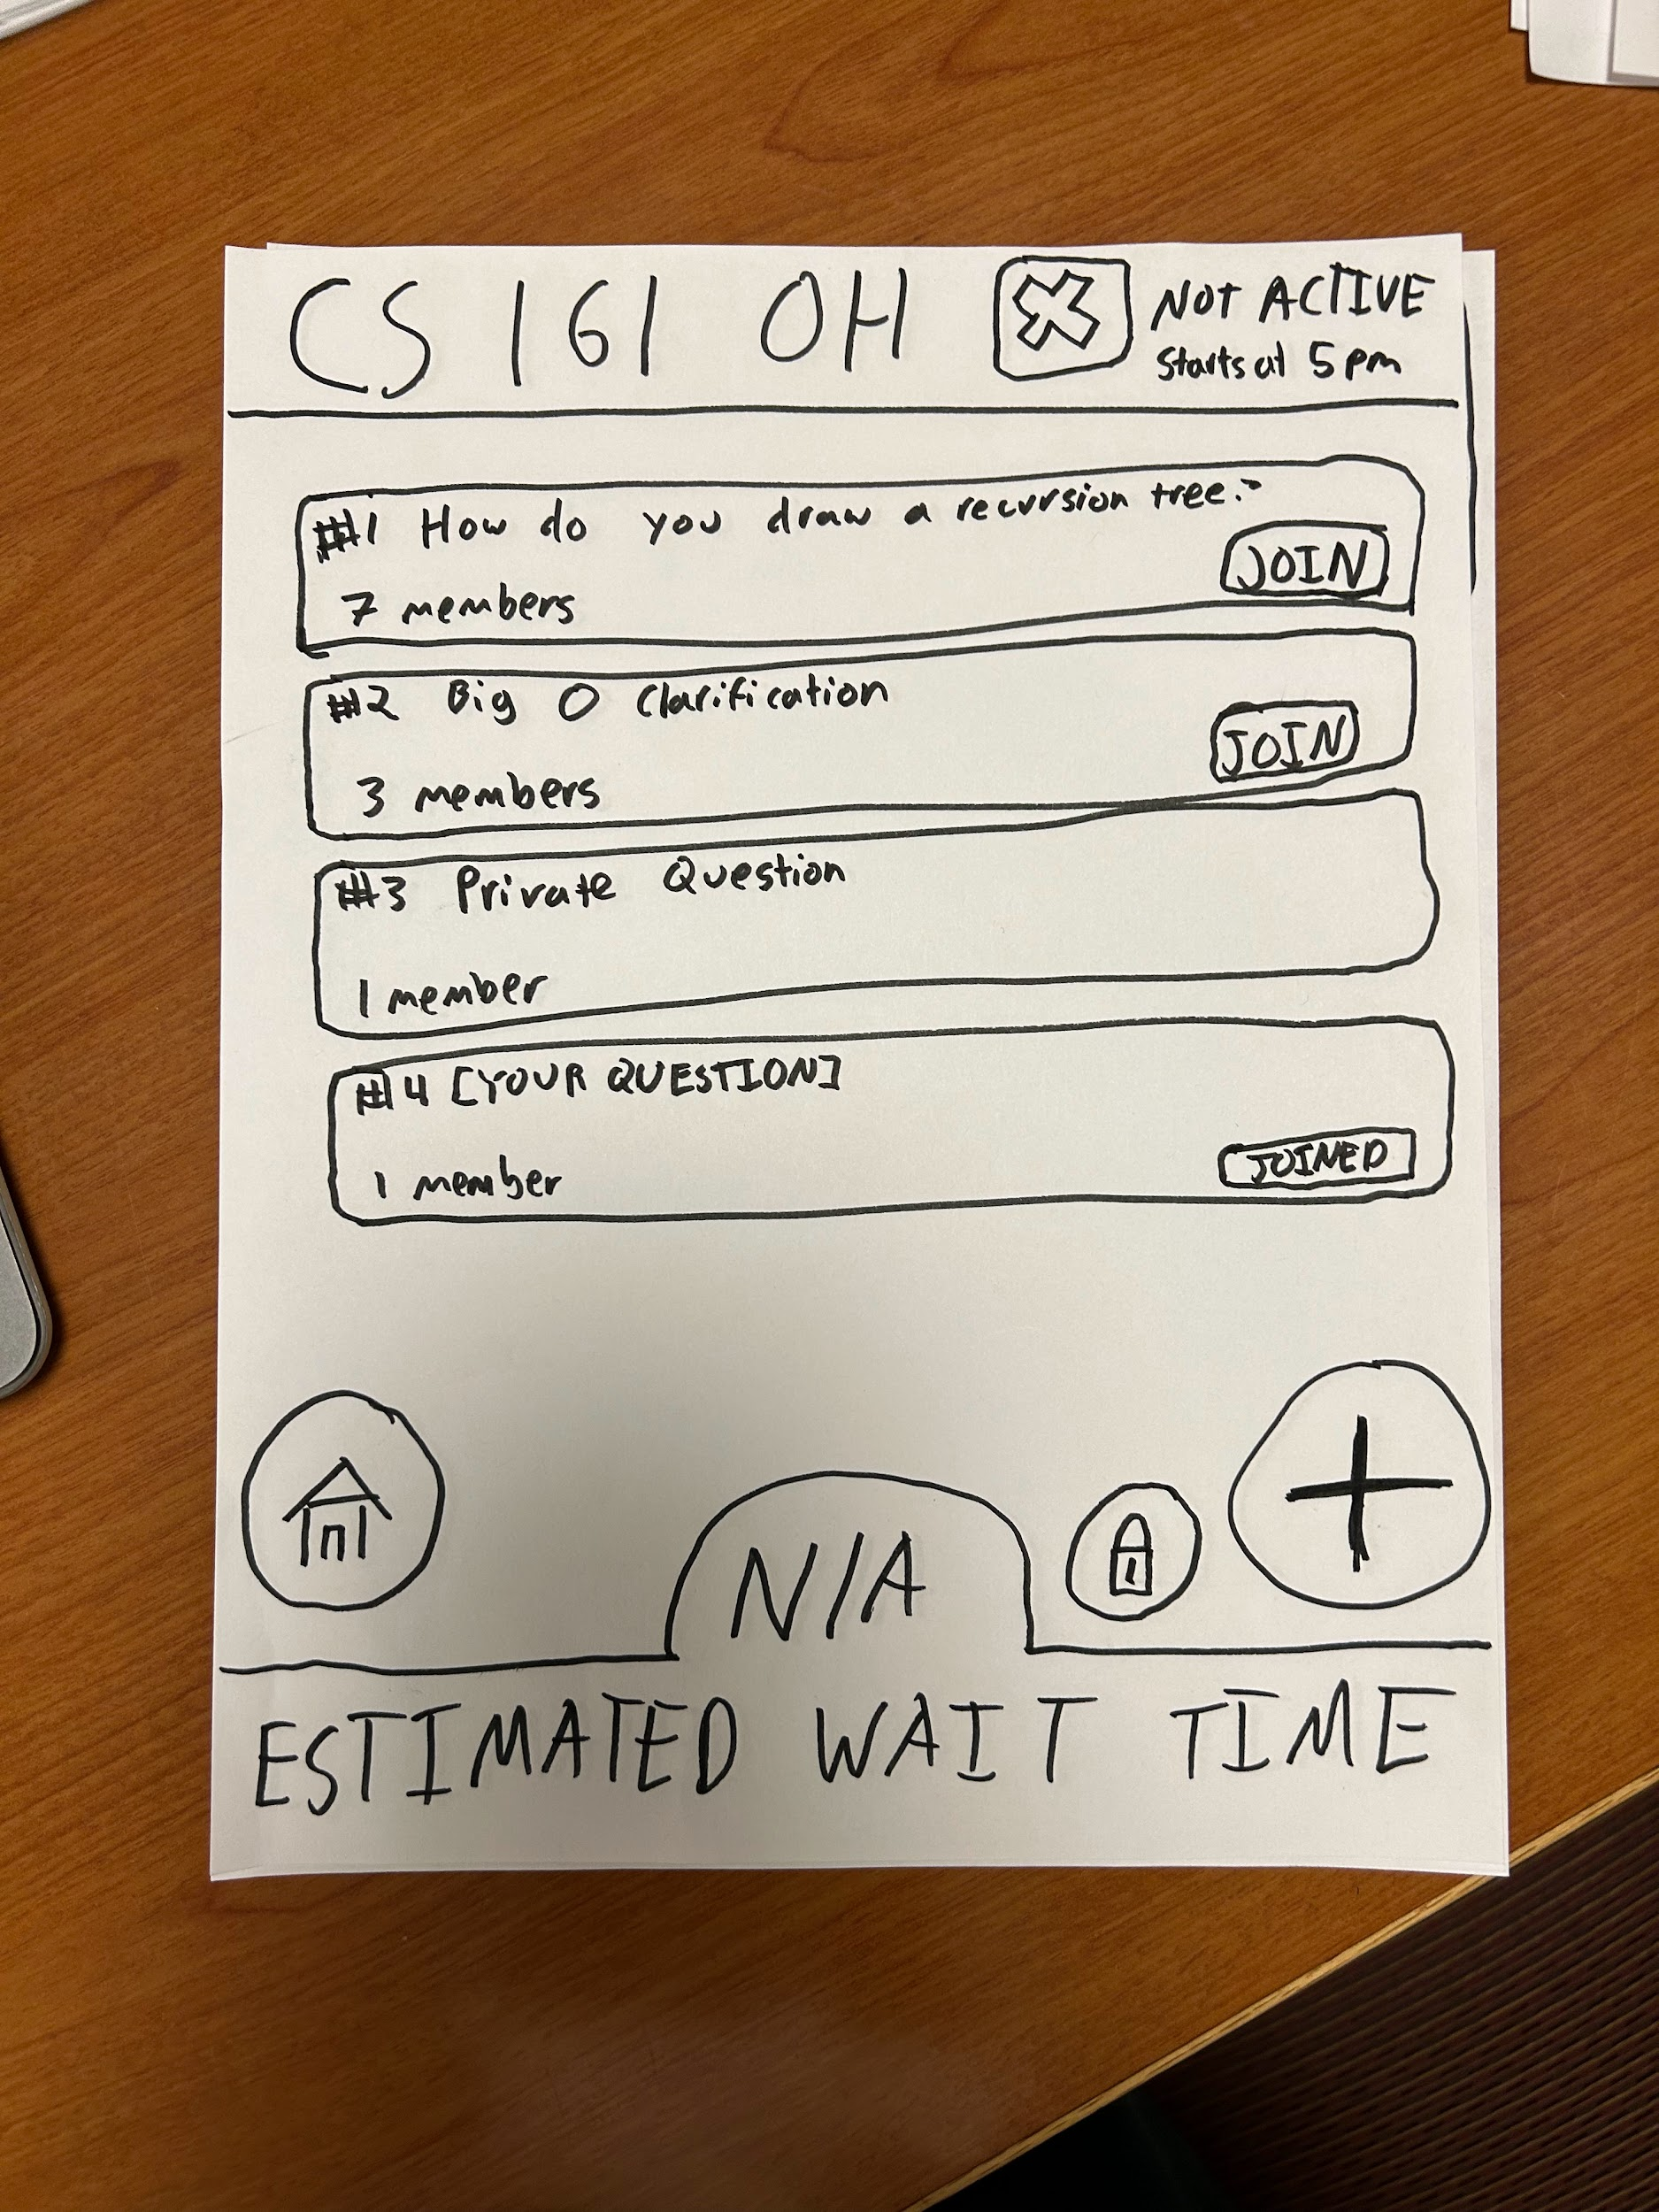 CS 161 OH
NOT ACTIVE
Starts at 5 pm
#1 How do you draw a recursion tree?
JOIN
7 members
#2 Big O Clarification
JOIN
3 members
#3 Private Question
1 member
#4 [YOUR QUESTION]
1 member
JOINED
N/A
ESTIMATED WAIT TIME